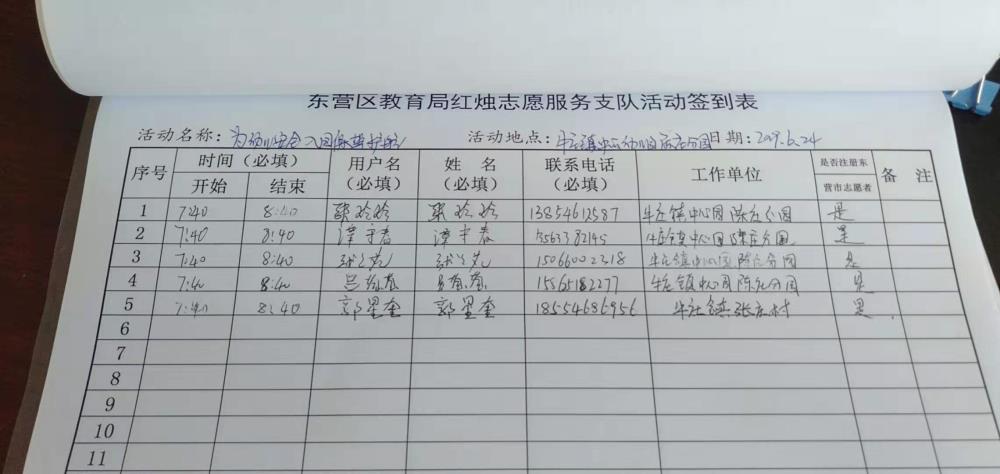 东营区教育局红烛志愿服务支队活动签到表
活动名称：为幼儿安全入园保驾护航 活动地点：牛庄镇中心幼儿园陈庄分园 日期：2019.6.24
序号 时间（必填） 用户名（必填） 姓名（必填） 联系电话（必填） 工作单位 是否注册东营市志愿者 备注
开始 结束
1 7:40 8:40 玲玲 玲玲 13854612587 牛庄镇中心园陈庄分园 是
2 7:40 8:40 谭宇春 谭宇春 15563382145 牛庄镇中心园陈庄分园 是
3 7:40 8:40 15066002318 牛庄镇中心园陈庄分园 是
4 7:40 8:40 吕 春 吕 春 15565182277 牛庄镇中心园陈庄分园 是
5 7:40 8:40 郭星奎 郭星奎 18554686956 牛庄镇张庄村 是
6
7
8
9
10
11